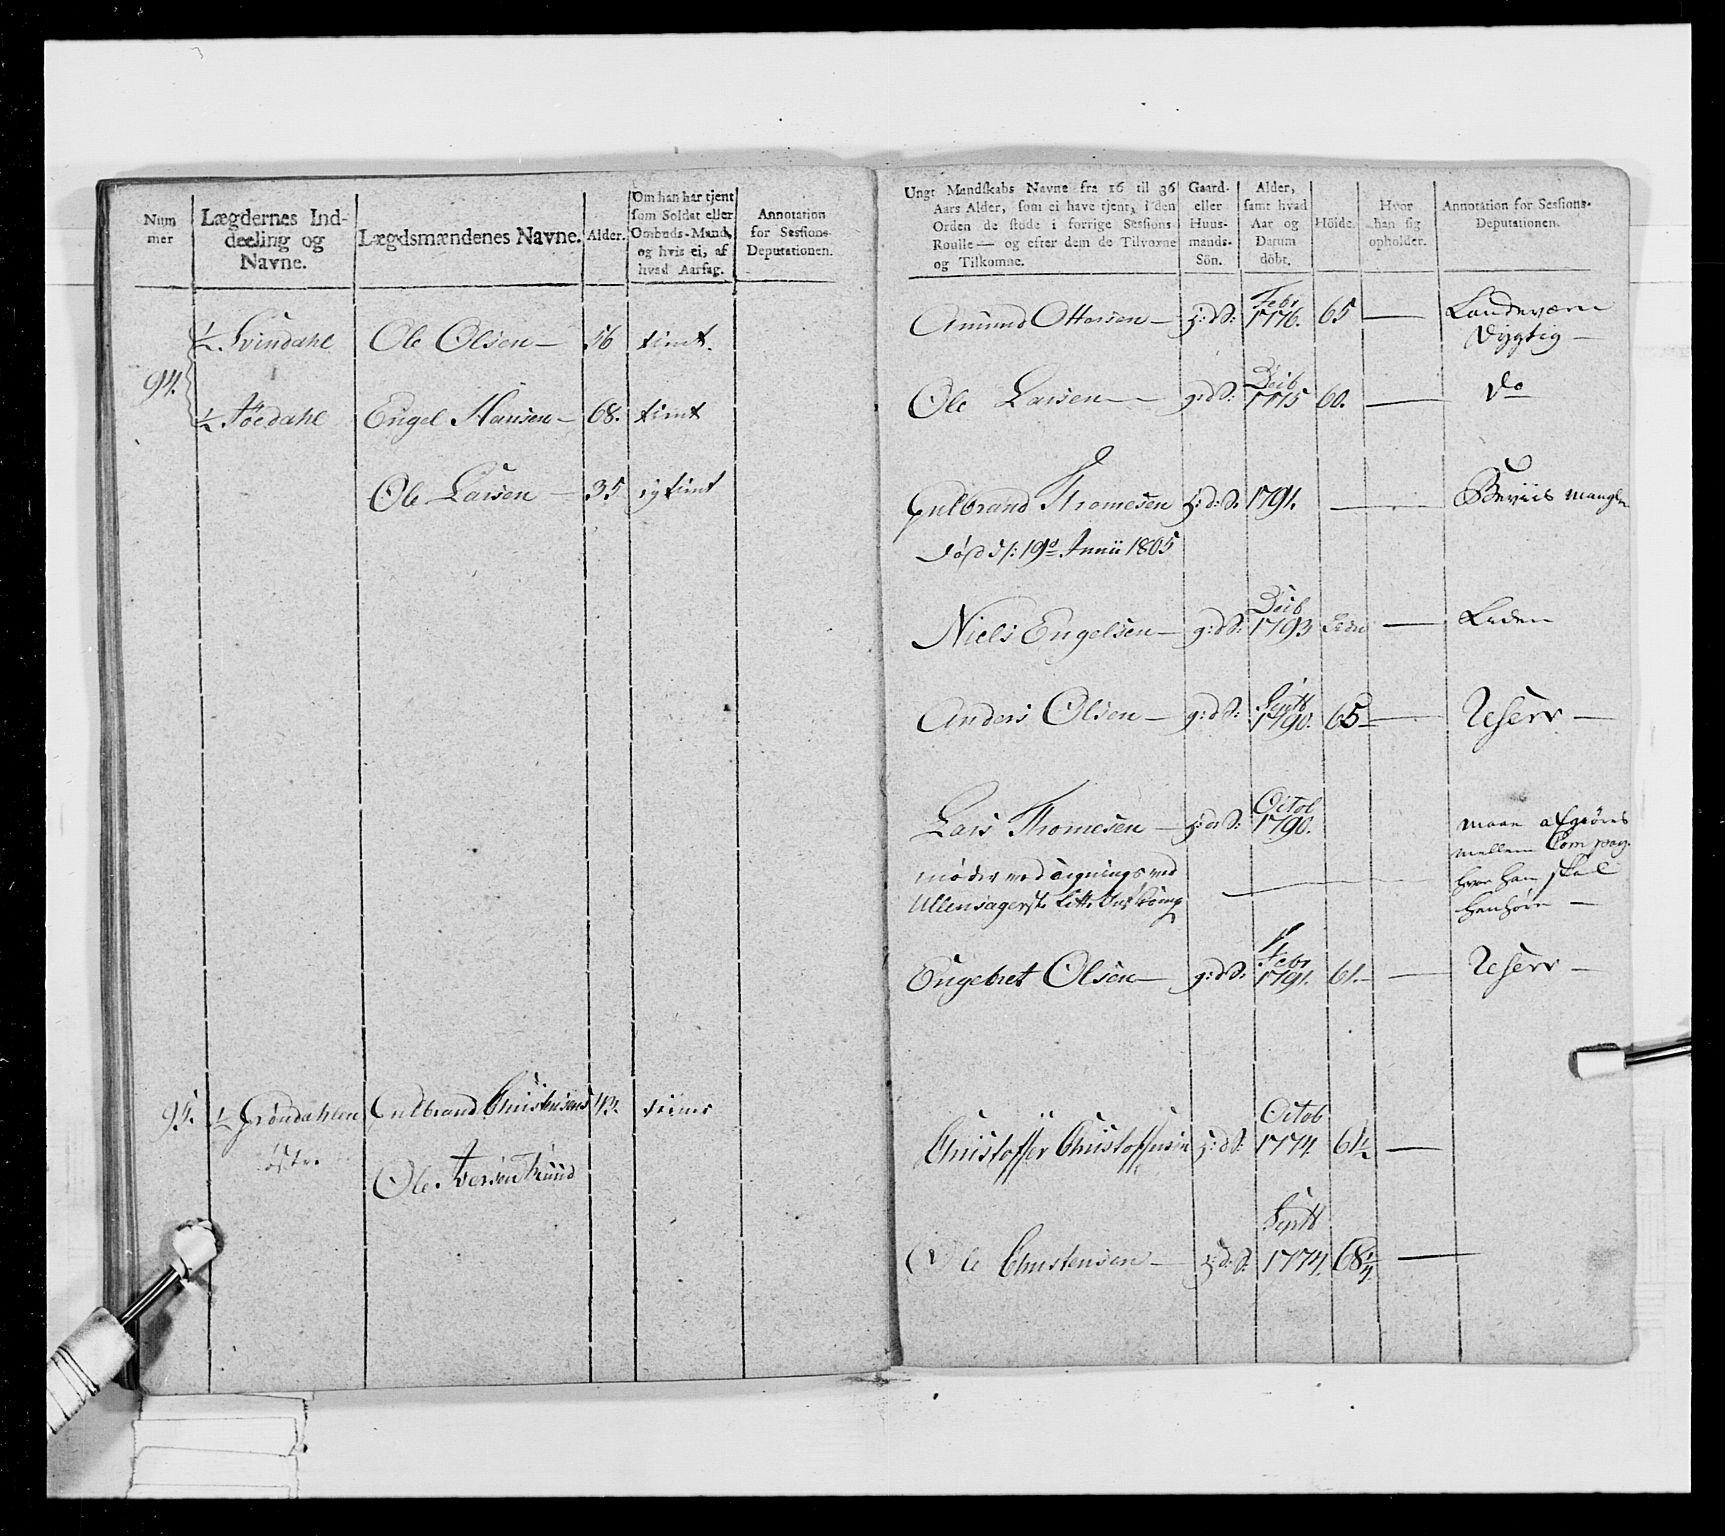 Num
mer
Lægdernes Ind-
deeling og
Navne.
Lægdsmændenes Navne.
Alder.
Om han har tjent
som Soldat eller
Ombuds-Mand,
og hvis ei, af
hvad Aarsag.
Annotation
for Sessions-
Deputationen.
½ Svindahl Ole Olsen — 56 tient.
94.
½ Töedahl Engel Hansen — 68. tient
Ole Larsen — 35 ey tient
95. 1/1 Gröndahlen Gulbrand Christensens 43. tiener
östre
Ole Iversen Ruud
Ungt Mandskabs Navne fra 16 til 36
Aars Alder, som ei have tjent, i den
Orden de stode i forrige Sessions-
Roulle — og efter dem de Tilvoxne
og Tilkomne.
Gaard-
eller
Huus-
mands-
Sön.
Alder,
samt hvad
Aar og
Datum
döbt.
Höide.
Hvor
han sig
opholder.
Annotation for Sessions-
Deputationen.
Amund Ottersen — h:d S: Febr 1776. 65 — Landeværn
Dygtig —
Ole Larsen — g:d S: Dcib 1775 60. — do
Gulbrand Thomesen h:d: S. 1791. — Beviis mangler
Död d: 19de Junii 1805
Niels Engelsen — g:d S: Dcib 1793 Liden — Liden
Anders Olsen — g:d S: Septb 1790. 65 — Reserv —
Lars Thomesen — h:d S: Octob 1790.
maae afgiöres
mellem Compag.
hvor han skal
henhöre —
möder ved
Ullensagerske
Engebret Olsen — g:d S: Febr 1791. 61. — Reserv —
Christoffer Christoffersen h:d S: Octob 1774. 61½ —
Ole Christensen — h:d: S. Septb 1774. 68¼ —